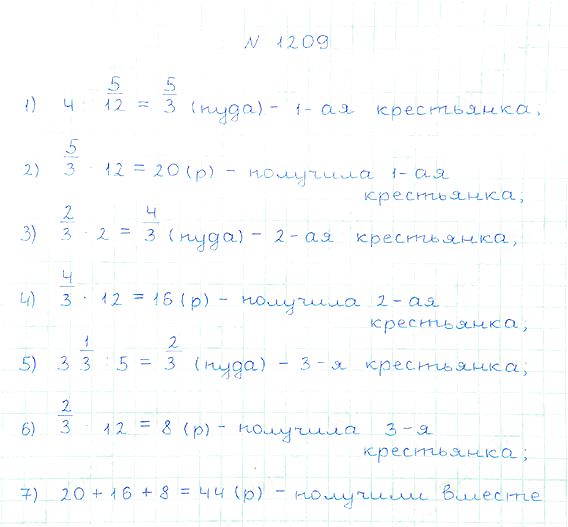 N 1209
1) 4 · 5/12 = 5/3 (пуда) - 1-ая крестьянка;
2) 5/3 · 12 = 20 (р) - получила 1-ая
крестьянка;
3) 2/3 · 2 = 4/3 (пуда) - 2-ая крестьянка;
4) 4/3 · 12 = 16 (р) - получила 2-ая
крестьянка;
5) 3 1/3 : 5 = 2/3 (пуда) - 3-я крестьянка;
6) 2/3 · 12 = 8 (р) - получила 3-я
крестьянка;
7) 20 + 16 + 8 = 44 (р) - получили вместе